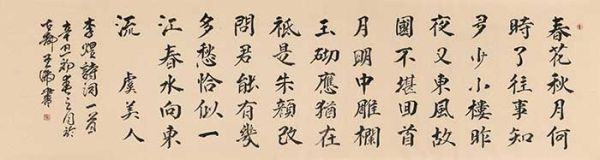 春花秋月何
時了往事知
多少小樓昨
夜又東風故
國不堪回首
月明中雕欄
玉砌應猶在
祗是朱顏改
問君能有幾
多愁恰似一
江春水向東
流 虞美人
李煜詩詞一首
辛丑初春之月於
古 王 書